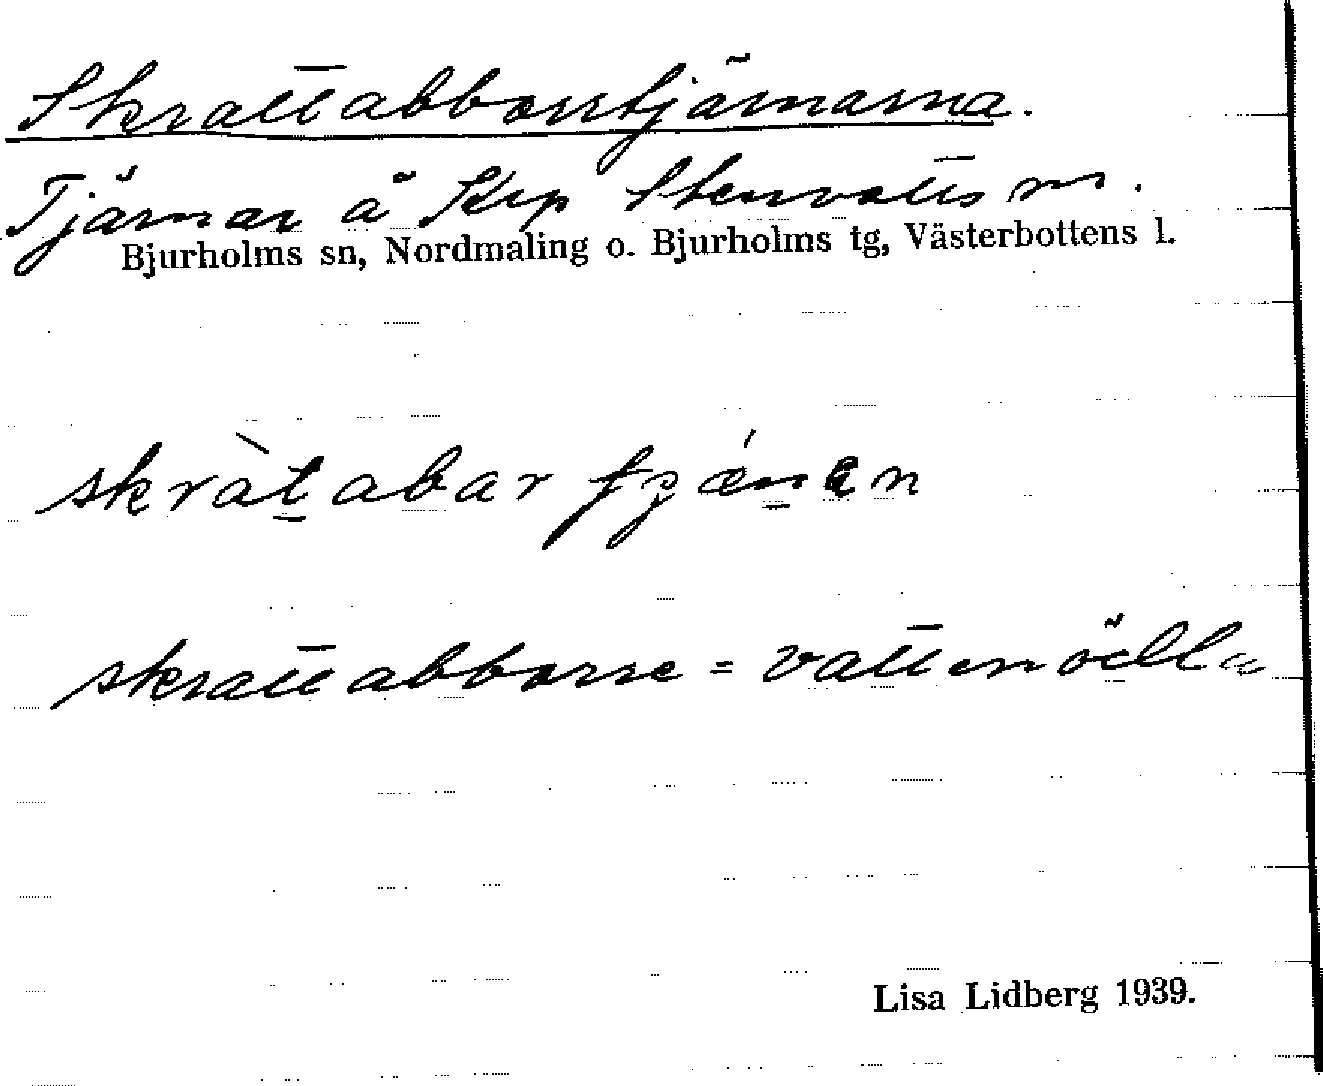 Skrattabborrtjärnarna.
Tjärnar å Krp Stenvatts m.
Bjurholms sn, Nordmaling o. Bjurholms tg, Västerbottens l.
skràt̲abar fjǽn̲en
skrattabborre = vattenödla
Lisa Lidberg 1939.